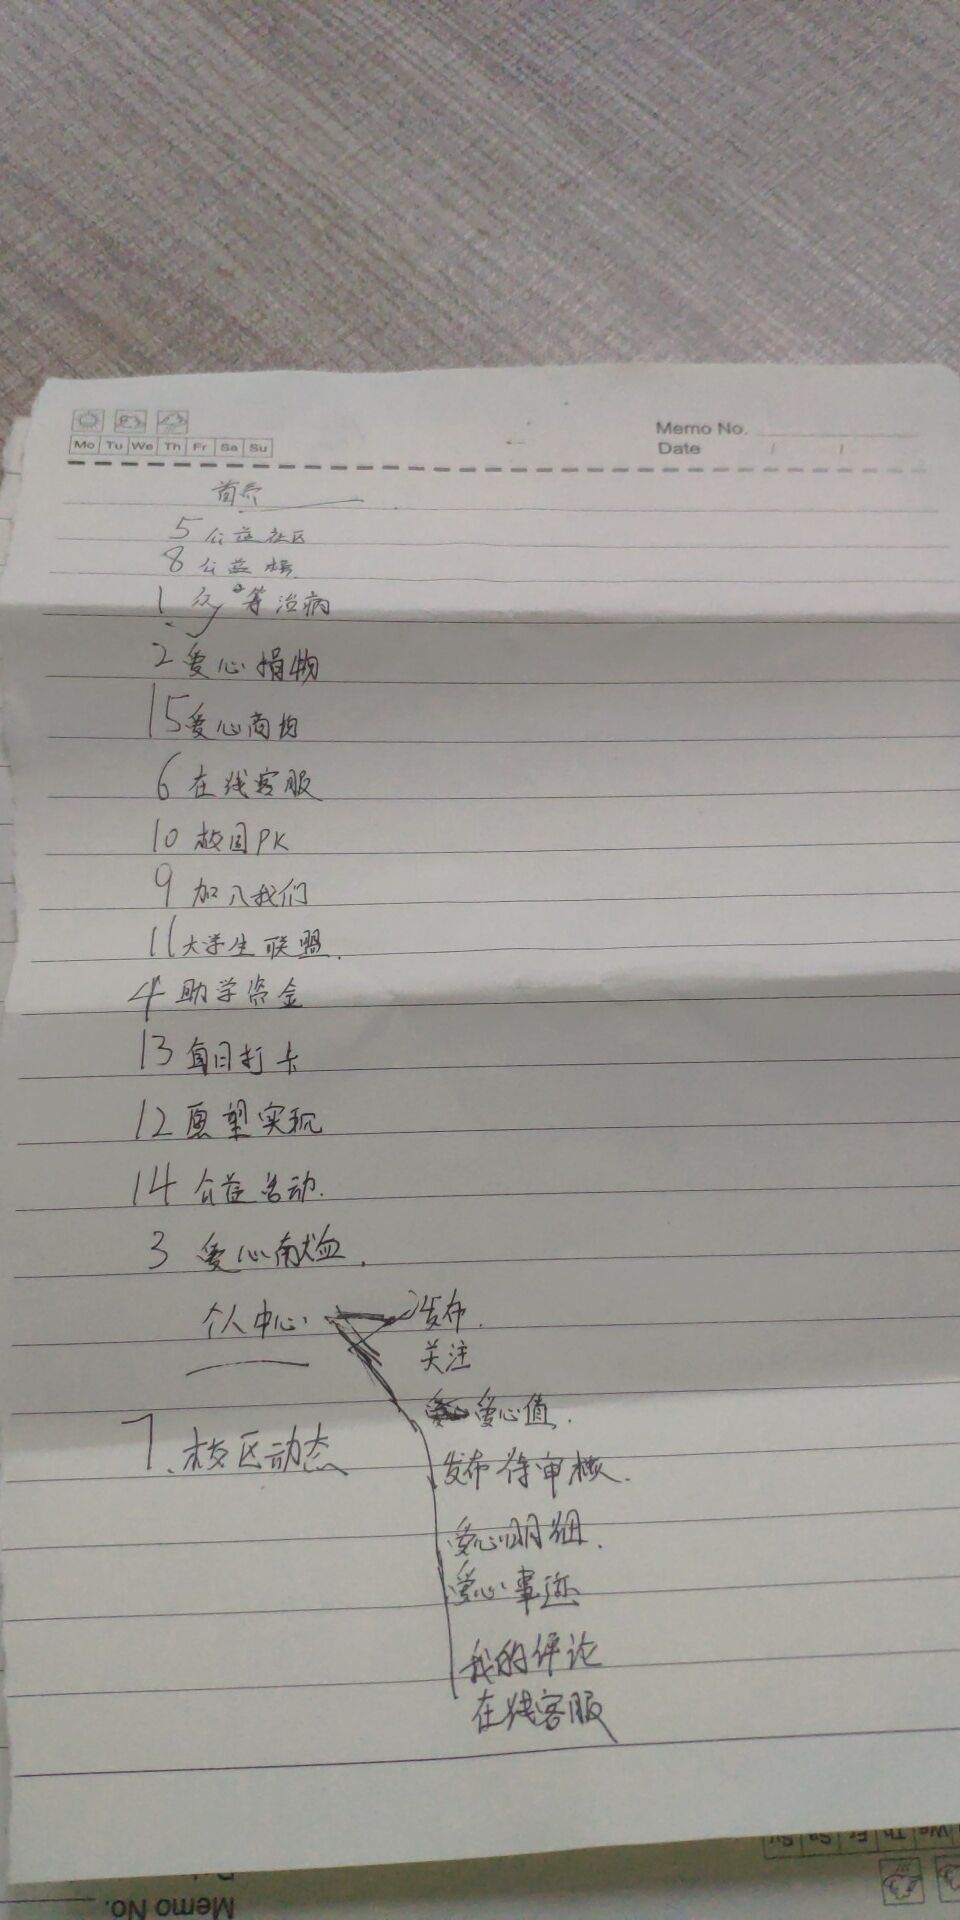 Mo Tu We Th Fr Sa Su
Memo No.
Date / /
简介
5 公益社区
8 公益榜
1 众筹治病
2 爱心捐物
15 爱心商
6 在线客服
10 校园PK
9 加入我们
11 大学生联盟.
4 助学资金
13 每日打卡
12 愿望实现
14 公益活动.
3 爱心献血.
个人中心
发布.
关注
爱心值.
7. 校区动态
发布待审核.
爱心明细.
爱心事迹
我的评论
在线客服
We Th Fr Sa Su
Memo No.